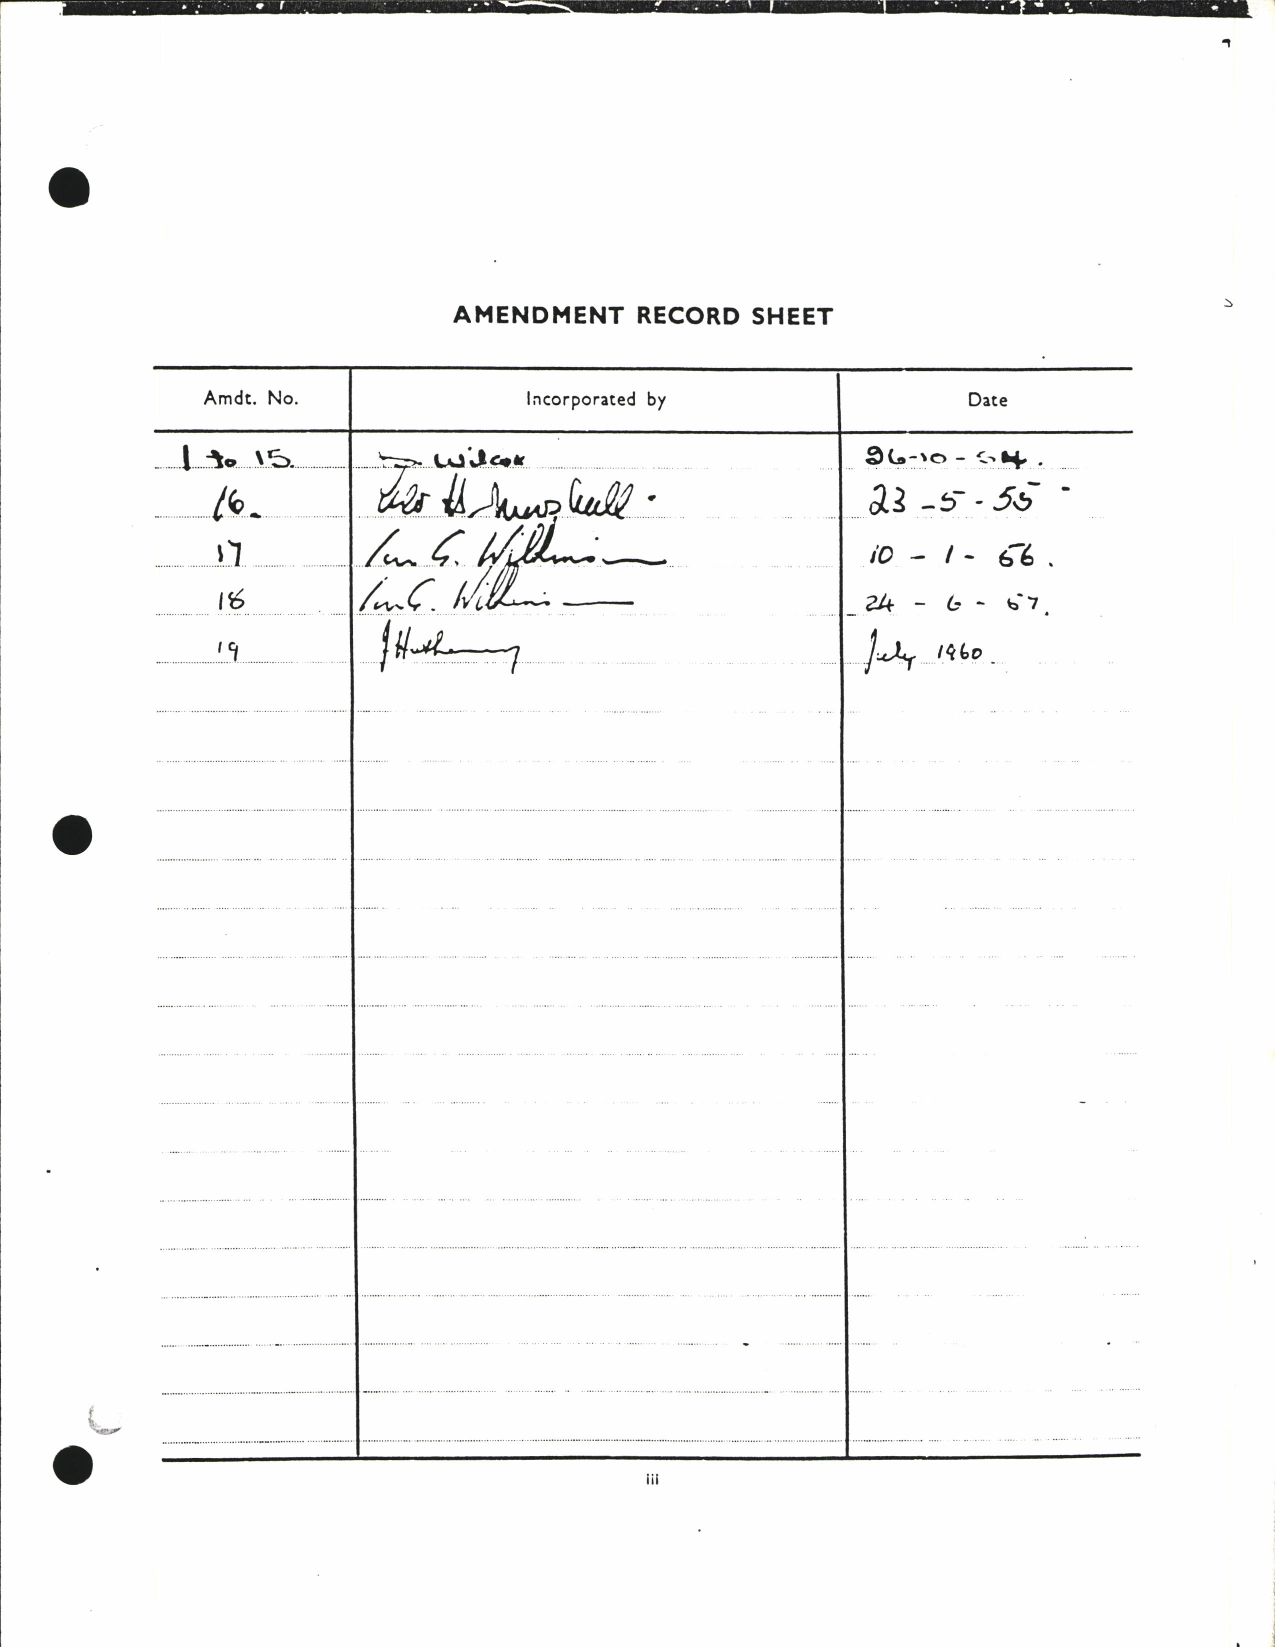 AMENDMENT RECORD SHEET
Amdt. No. Incorporated by Date
1 to 15. Wilcox 26-10-54.
16. 23-5-55
17 Ian G. 10-1-56.
18 Ian G. 24-6-57.
19 July 1960.
iii